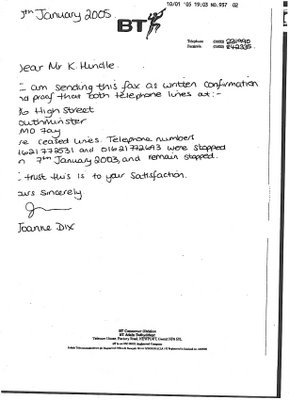 7th January 2005
10/01 '05 19:03 NO.937 02
BT
Telephone
Facsimile
Dear Mr K. Hindle
I am sending this fax as written confirmation
nd proof that both telephone lines at :-
High Street
outhminster
MO 7AY
re ceased lines. Telephone numbers
1621772531 and 01621772693 were stopped
n 7th January 2003, and remain stopped.
I trust this is to your satisfaction.
urs sincerely
Joanne Dix
BT Consumer Division
Telecom House, Factory Road, NEWPORT, Gwent